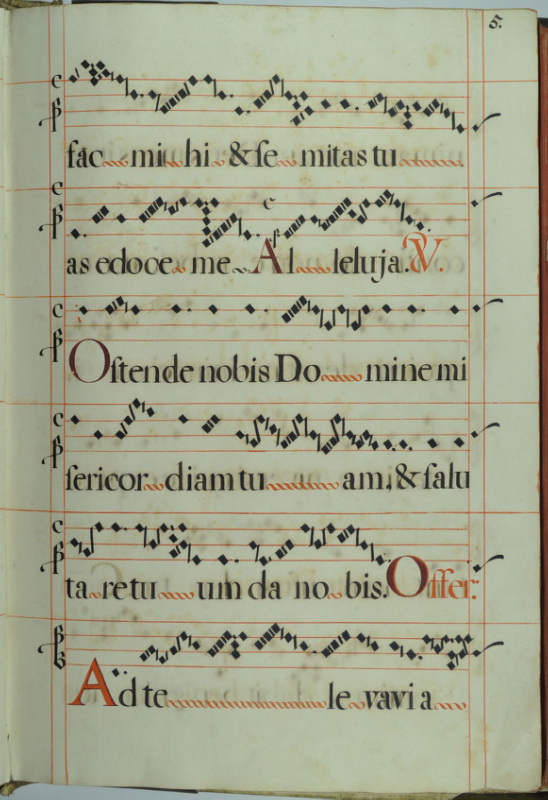 5.
fac mihi & semitas tu
as edoce me Alleluja. V.
Ostende nobis Domine mi
sericordiam tuam, & salu
tare tuum da nobis. Offer:
Ad te levavi a